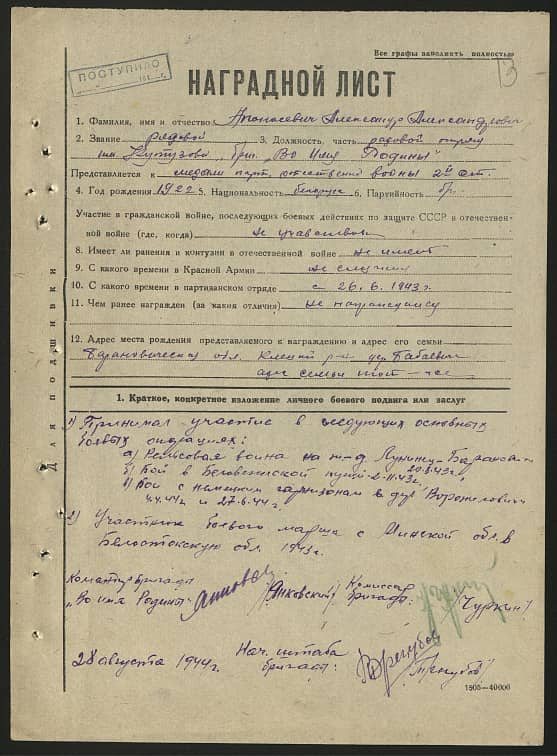 Все графы заполнять полностью
ПОСТУПИЛО
13
НАГРАДНОЙ ЛИСТ
1. Фамилия, имя и отчество Апонасевич Александр Александрович
2. Звание рядовой 3. Должность, часть рядовой отряда
им. Кутузова, бриг. "Во Имя Родины"
Представляется к медали парт. отечествен войны 2й ст.
4. Год рождения 1922 5. Национальность белорус 6. Партийность бп.
Участие в гражданской войне, последующих боевых действиях по защите СССР и отечествен-
ной войне (где, когда) не участвовал
8. Имеет ли ранения и контузии в отечественной войне не имеет
9. С какого времени в Красной Армии не служил
10. С какого времени в партизанском отряде с 26.6.1943 г.
11. Чем ранее награжден (за какия отличия) не награждался
12. Адрес места рождения представляемого к награждению и адрес его семьи
Барановическая обл. Клецкий р-н
адрес семьи тот-же
Для подшивки
1. Краткое, конкретное изложение личного боевого подвига или заслуг
1) Принимал участие в следующих основных
боевых операциях:
а) Рельсовая война на ж-д Лунинец-Баранович
20.8.43г.
б) Бой в Беловежской пуще 2.11.43г.
в) Бой с немецким гарнизоном в дер Воронилович
4.4.44г. и 27.6.44г.
2) Участник боевого марша с Минской обл. в
Белостокскую обл. 1943г.
Командир бригады
"Во имя Родины" /Янковский/
Комиссар
бригады: /Чуркин/
28 августа 1944г.
Нач. штаба
бригады:
1805—40000